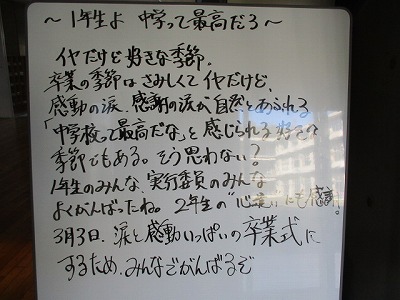 ～1年生よ 中学って最高だろ～
イヤだけど好きな季節。
卒業の季節はさみしくてイヤだけど、
感動の涙、感謝の涙が自然とあふれる
「中学校って最高だな」と感じられる好きな
季節でもある。そう思わない?
1年生のみんな、実行委員のみんな
よくがんばったね。2年生の"心遣い"にも感謝!
3月3日、涙と感動いっぱいの卒業式に
するため、みんなでがんばるぞ